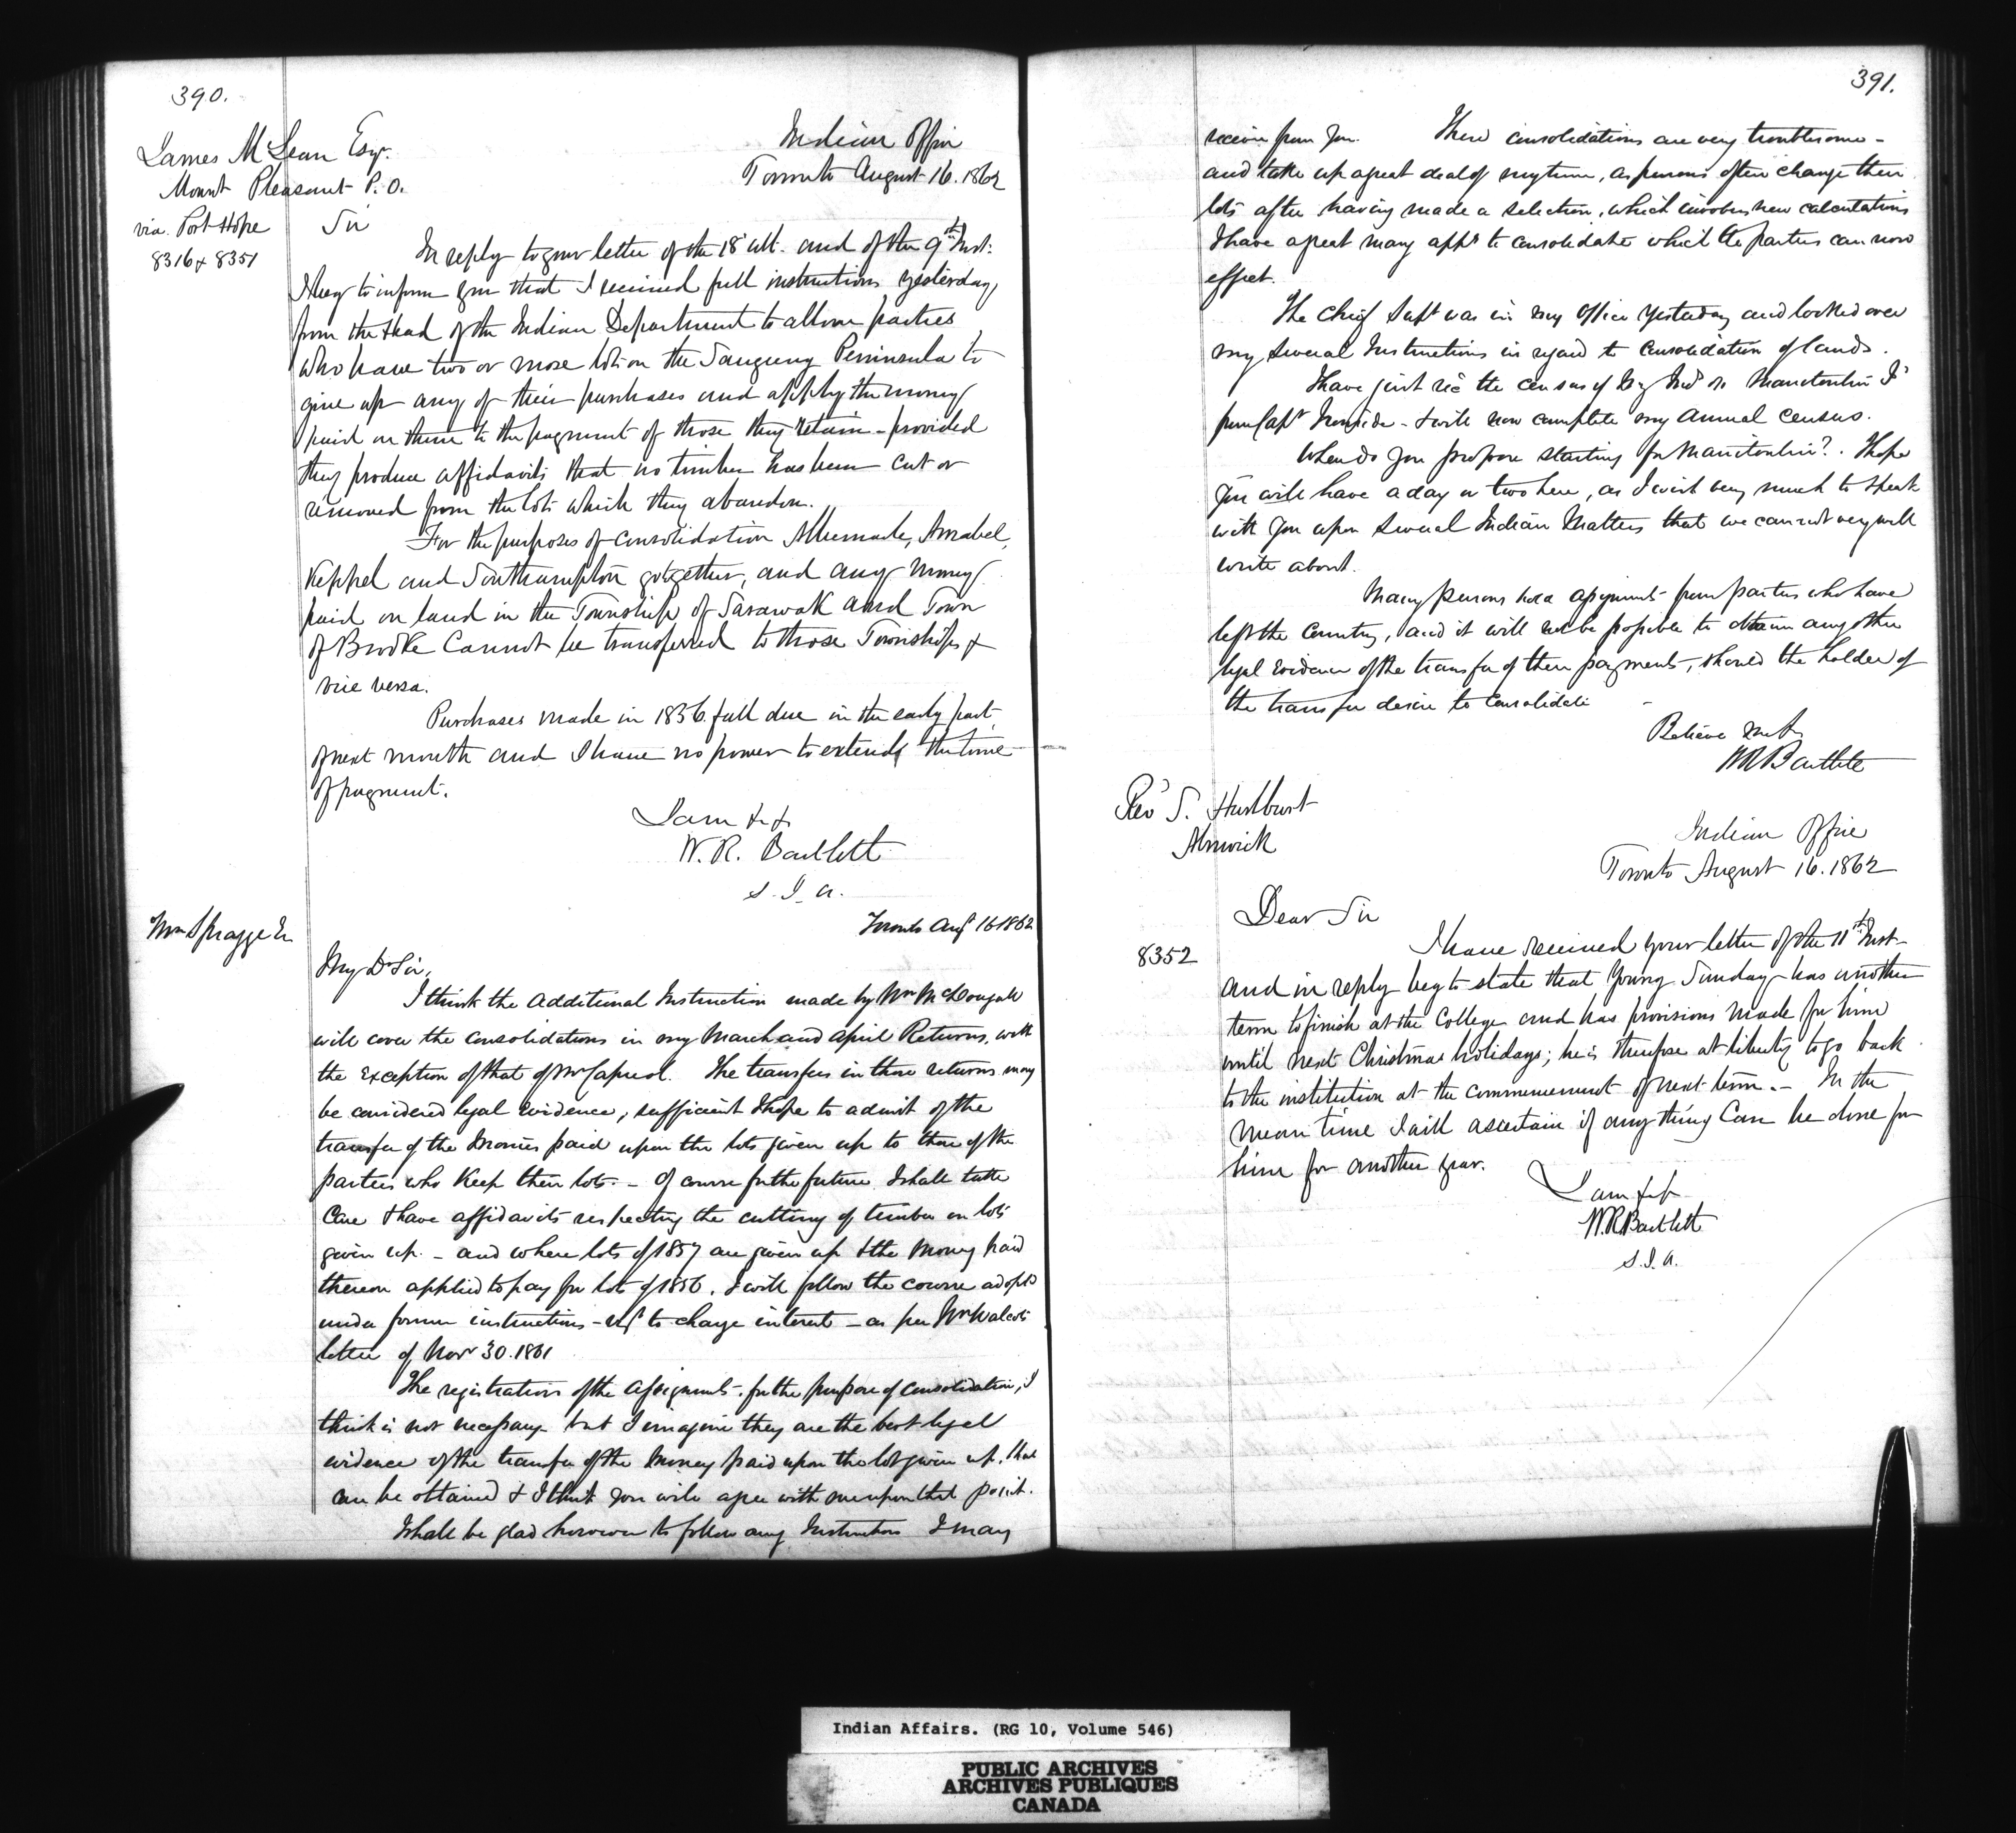 390.
James McLean Esqr.
Mount Pleasant P.O.
via Port Hope
8316 & 8351
Indian Office
Toronto August 16. 1862
Sir
In reply to your letter of the 18 ult. and of the 9th Inst:
I beg to inform you that I received full instructions yesterday
from the Head of the Indian Department to allow parties
who have two or more lots on the Saugeeng Peninsula to
give up any of their purchases and apply the money
paid on them to the payment of those they retain - provided
they produce affidavits that no timber has been cut or
removed from the lots which they abandon.
For the purposes of consolidation Albemarle, Amabel,
Keppel and Southampton go together, and any money
paid on land in the Township of Sarawak and Town
of Brooke Cannot be transferred to those Townships &
vice versa.
Purchases made in 1856 fall due in the early part
of next month and I have no power to extend the time
of payment.
I am &c &
W. R. Bartlett
S. I. A.
Wm Spragge Er
Toronto Augt 16 1862
My Dr Sir,
I think the additional Instruction made by Wm McDougall
will cover the consolidations in my March and April Returns, with
the exception of that of Mr Capreol. The transfers in those returns may
be considered legal evidence, sufficient I hope to admit of the
transfer of the monies paid upon the lots given up to those of the
parties who Keep their lots. - Of course for the future I shall take
Care & have affidavits respecting the cutting of timber on lots
given up. - and where lots of 1857 are given up & the money paid
thereon applied to pay for lots of 1856. I will follow the course adopted
under former instructions - to charge interest - as per Mr Walcot's
letter of Novr 30. 1861
The registration of the assignments for the purpose of consolidation, I
think is not necessary but I imagine they are the best legal
evidence of the transfer of the money paid upon the lots given up, that
can be obtained & I think you will agree with me upon that point.
I shall be glad however to follow any Instructions I may
391.
receive from you. These consolidations are very troublesome -
and take up a great deal of my time, as persons often change their
lots after having made a selection, which involves new calculations
I have a great many appns to consolidate which the parties can now
effect.
The Chief Supt was in my Office yesterday and looked over
my several Instructions in regard to consolidation of lands.
I have just rec the census of my Inds on Manitoulin Id
from Capt Ironside - & will now complete my annual census.
When do you propose starting for Manitoulin? I hope
you will have a day or two here, as I wish very much to speak
with you upon several Indian Matters that we can not very well
write about.
Many persons hold assignments from parties who have
left the Country, and it will not be possible to obtain any other
legal evidence of the transfer of their payments, should the holder of
the transfer desire to consolidate
Believe me &c
WR Bartlett
Revd S. Hurlburt
Alnwick
Indian Office
Toronto August 16. 1862
Dear Sir
8352
I have received your letter of the 11th Inst-
and in reply beg to state that Young Sunday has another
term to finish at the College and has provisions made for him
until next Christmas holidays; he is therefore at liberty to go back
to the institution at the commencement of next term. - In the
mean time I will ascertain if anything Can be done for
him for another year.
I am &c &
WR Bartlett
S. I. A.
Indian Affairs. (RG 10, Volume 546)
PUBLIC ARCHIVES
ARCHIVES PUBLIQUES
CANADA